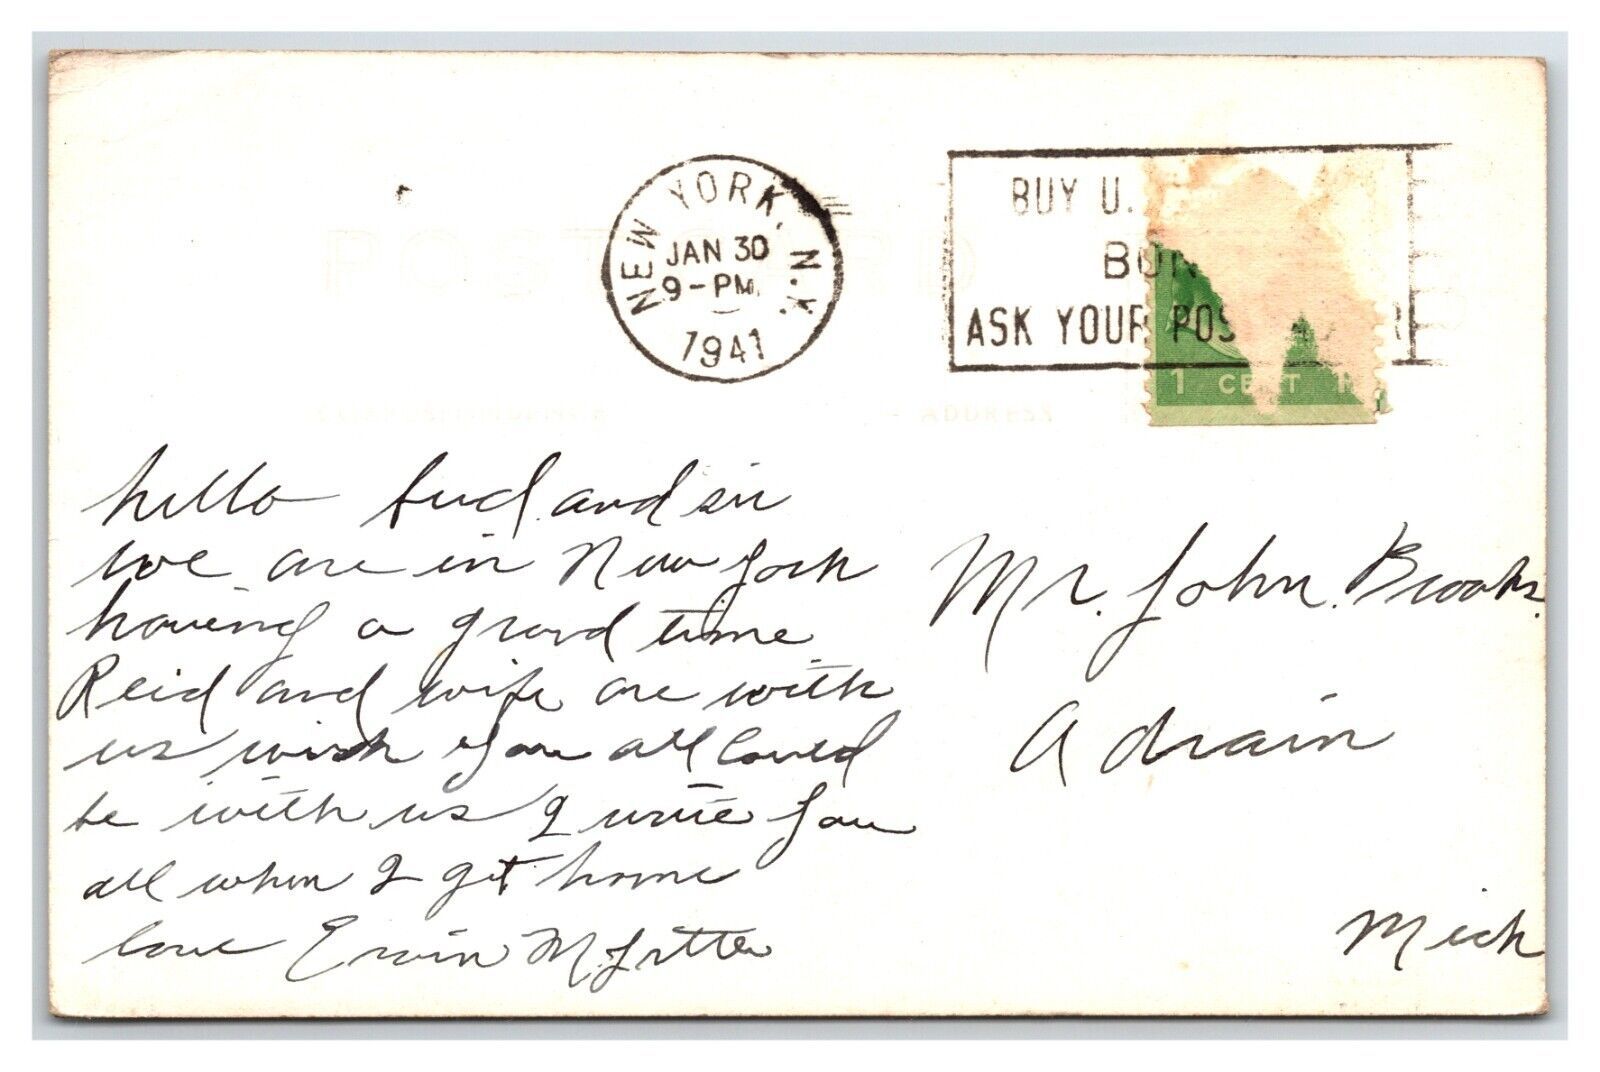 POST CARD
NEW YORK, N.Y.
JAN 30
9-PM
1941
BUY U.
BON
ASK YOUR POS
1 CENT 1
CORRESPONDENCE
ADDRESS
hello bud and sis
we are in New York
having a grand time
Reid and wife are with
us wish you all could
be with us I write you
all when I get home
love Ervin M.
Mr. John Brooks.
Adrain
Mich